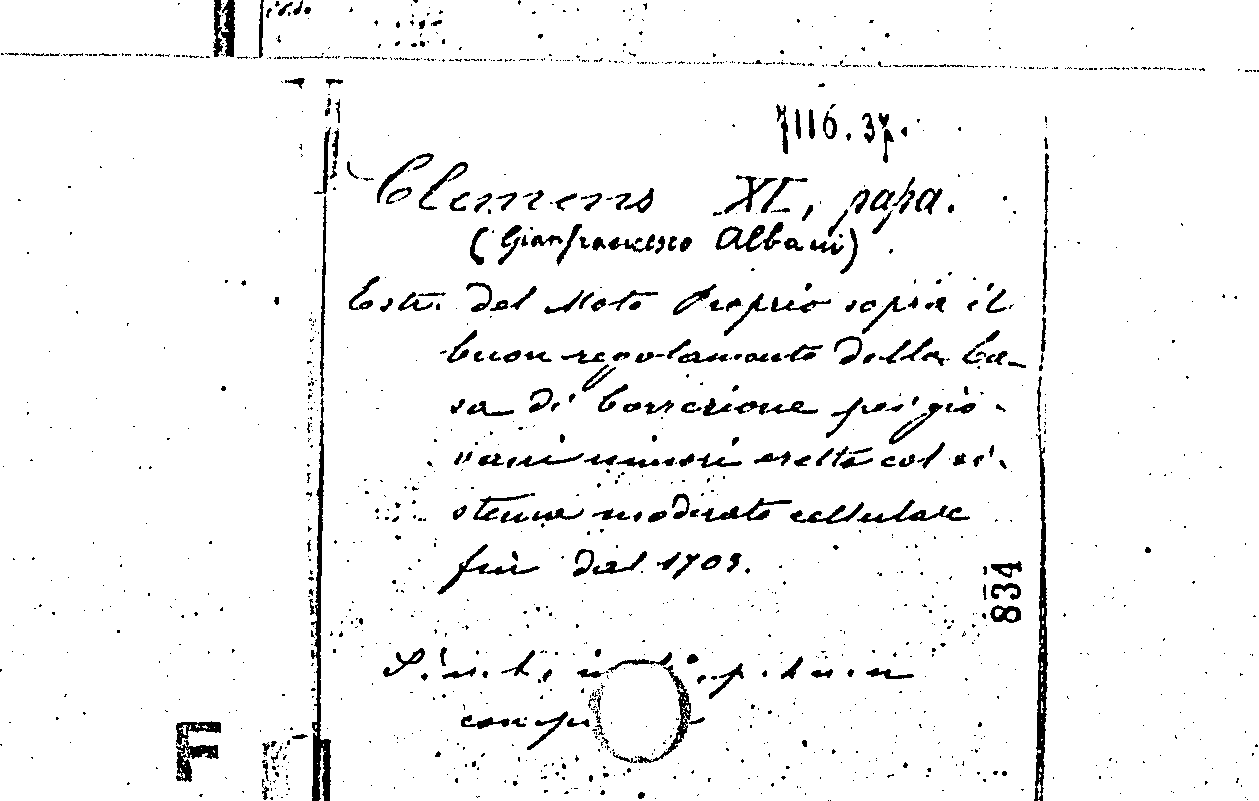 7116.37.
Clemens XI, papa.
(Gianfrancesco Albani)
Estr. del Moto Proprio sopra il
buon regolamento della Ca-
sa di Correzione pei gio-
vani minori eretta col si-
stema moderato cellulare
fin dal 1703.
834
S. n. t., in 8°, p.
F